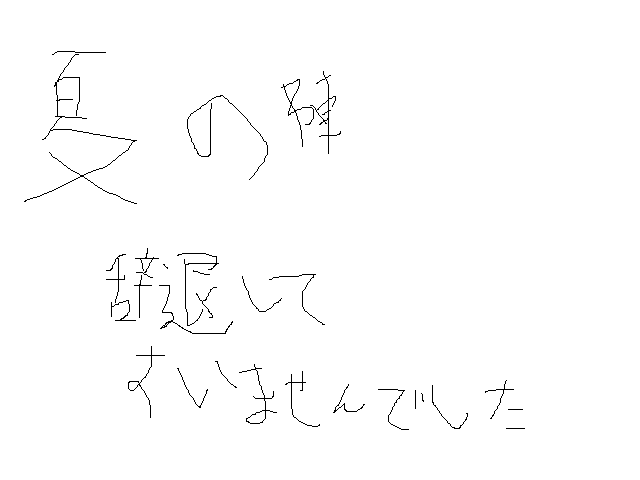 夏の陣
辞退して
すいませんでした